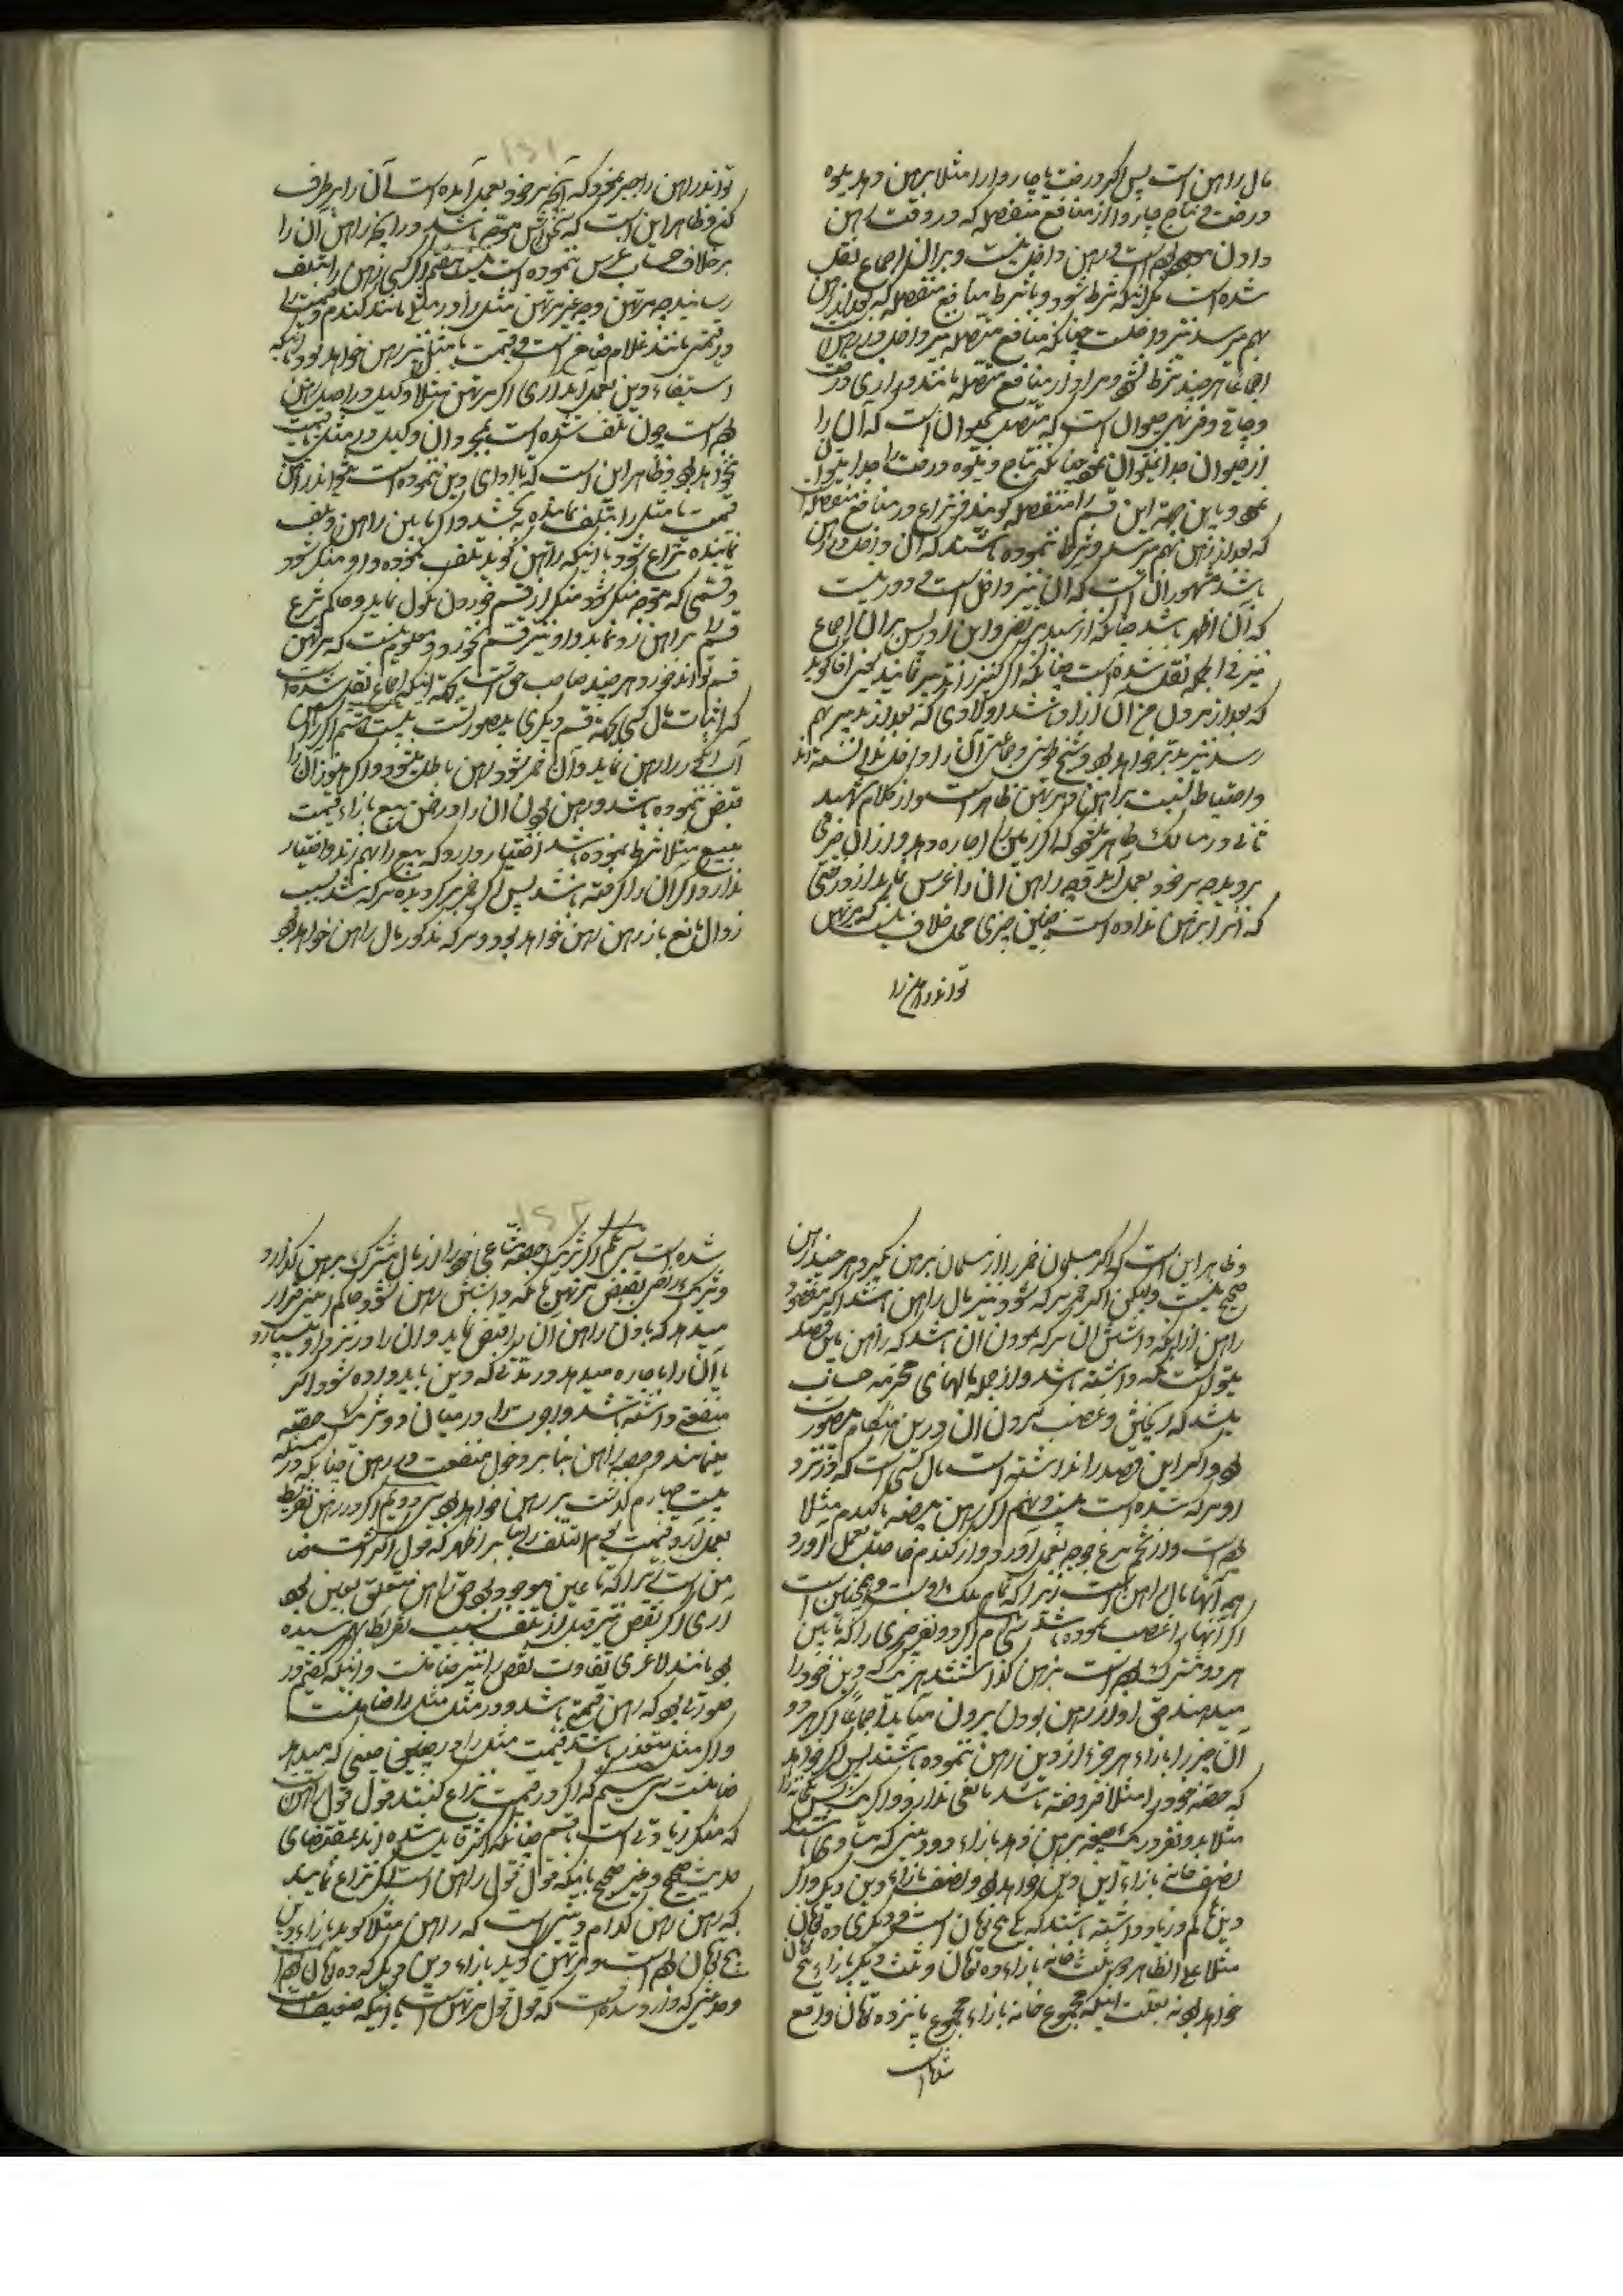 مال راهن است پس اگر درخت یا چاروا را مثلا برهن دهد میوه
درخت و نتاج چاروا از منافع منفصله که در وقت رهن
دادن موجود بوده است در رهن داخل نیست و بر آن اجماع نقل
شده است مگر اینکه شرط شود و با شرط منافع منفصله که بعد از رهن
بهم میرسد نیز داخلست چنانکه منافع متصله نیز داخل در رهن
اجماعا هر چند شرط نشود و مراد از منافع متصله مانند درازی درخت
و چاقی و فربهی حیوان است که متصل بحیوان است که آن را
از حیوان جدا نمیتوان نمود چنانکه نتاج و میوه درخت را جدا میتوان
نمود و باین جهة این قسم را منفصله گویند و نزاع در منافع منفصله
که بعد از رهن بهم میرسد و شرط ننموده باشند که آن داخل در رهن
باشد مشهور آن است که آن نیز داخل است و دور نیست
که آن اظهر باشد چنانکه از سید مرتضی و ابن ادریس بر آن اجماع
نیز فی الجمله نقل شده است چنانکه اگر کنیز را تدبیر نمایند یعنی آقا گوید
که بعد از مردن من آن آزاد باشد اولادی که بعد از تدبیر بهم
رسد نیز مدبر خواهد بود و شیخ طوسی و جماعتی آن را داخل ندانسته‌اند
و احتیاط نسبت براهن و مرتهن ظاهر است و از کلام شهید
ثانی در مسالک ظاهر میشود که اگر زمین را اجاره دهد و از آن چیزی
بروید چه سر خود بعمل آید و چه راهن آن را غرس نماید از درختی
که آنرا برهن نداده است چنین چیزی محل خلاف نیست که مرتهن
تواند راهن را
تواند راهن را جبر نمود که آنچه سر خود بعمل آمده است آن را برطرف
کند و ظاهر این است که نتواند باشد و در آنچه راهن آن را
برخلاف حساب غرس نموده است بیست و هفتم اگر کسی رهن را بتلف
رساند چه مرتهن و چه غیر مرتهن مثل را در مثلی مانند گندم و قیمت را
در قیمتی مانند غلام ضامن است و قیمت یا مثل نیز رهن خواهد بود و اینکه
استیفاء دین بعمل آید آری اگر مرتهن مثلا وکیل در اصل رهن
بوده است چون تلف شده است بمجرد آن وکیل در مثل یا قیمت
نخواهد بود و ظاهر این است که تا ادای دین ننموده است نمیتواند راهن
قیمت یا مثل را بتلف نماینده به بخشد و اگر مابین راهن و تلف
نماینده نزاع شود باینکه راهن گوید تلف نموده و او منکر شود
و قسمی که متوجه منکر شود منکر از قسم خوردن نکول نماید و حاکم شرع
قسم را براهن رد نماید و او نیز قسم نخورد و معلوم نیست که مرتهن
قسم تواند خورد هر چند صاحب حق است بجهة اینکه اجماع نقل شده است
که اثبات مال کسی بجهة قسم دیگری بی‌صورت است بیست و هشتم اگر راهن
آب انگور را رهن نماید و آن خمر شود رهن باطل میشود و اگر هنوز آن را
قبض ننموده باشد و رهن بودن آن را در ضمن بیع بازاء قیمت
مبیع مثلا شرط نموده باشد اختیار دارد که بیع را بهم زند و اختیار
ندارد اگر آن را گرفته باشد پس اگر خمر برگردیده سرکه شد بسبب
زوال مانع باز رهن رهن خواهد بود و سرکه مذکور مال راهن خواهد بود
و ظاهر این است که اگر مسلمان خمر را از مسلمان برهن بگیرد هر چند رهن
صحیح نیست ولیکن اگر خمر سرکه شود نیز مال راهن باشد اگر مقصود
راهن از نگه داشتن آن سرکه نمودن آن باشد که راهن باین قصد
میتوانست نگه داشته باشد و از جمله مالهای محترمه حساب
میشد که ریختن و غصب کردن آن در این هنگام محظور
بود و اگر این قصد را نداشته است مال کسی است که در نزد
او سرکه شده است بیست و نهم اگر رهن بیضه یا گندم مثلا
بوده است و از تخم مرغ جوجه بعمل آورد و از گندم حاصل بعمل آورد
همه آنها مال راهن است زیرا که نمای ملک اوست و همچنین است
اگر آنها را غصب نموده باشد سی‌ام اگر دو نفر چیزی را که مابین
هر دو مشترک بوده است برهن گذاشتند هر یک که دین خود را
میدهند حق او از رهن بودن بیرون میآید اجماعا اگر هر دو
آن چیز را بازاء هر جزء از دین رهن ننموده باشند پس اگر خواهد
که حصه خود را مثلا فروخته باشد مانعی ندارد و اگر یک کس خانه را
مثلا بدو نفر در یک صیغه برهن دهد بازاء دو دینی که مساوی باشند
نصف خانه بازاء این دین خواهد بود و نصف بازاء دین دیگر و اگر
دین کم و زیاد داشته باشند که یکی پنج تومان است و دیگری ده تومان
مثلا علی الظاهر دو ثلث خانه بازاء ده تومان و ثلث دیگر بازاء پنج تومان
خواهد بود نه بعلت اینکه مجموع خانه بازاء مجموع پانزده تومان واقع
شده است
شده است سی و یکم اگر شریک حصه مشاعی خود را از مال مشترک برهن گذارد
و شریک راضی بقبض مرتهن یا نگه داشتن رهن نشود حاکم امینی قرار
میدهد که باذن راهن آن را قبض نماید و آن را در نزد او میسپارد
یا آن را باجاره میدهد در مدتی که دین باید داده شود اگر
منفعتی داشته باشد و اجرت را در میان دو شریک حصه
مینمایند و حصه راهن بنابر دخول منفعت در رهن چنانکه در مسئله
بیست و چهارم گذشت بر رهن خواهد بود سی و دویم اگر در رهن تفریط
بعمل آرد قیمت یوم التلف را بنابر اظهر که قول اکثر است
ضامن است زیرا که تا عین موجود بود حق راهن متعلق بعین بود
آری اگر نقص قیمتی قبل از تلف بسبب تفریط بهم رسیده
بود مانند لاغری تفاوت نقص را نیز ضامنست و اینکه گفتیم در
صورتی بود که رهن قیمتی باشد و در مثلی مثل را ضامنست
و اگر مثل متعذر باشد قیمت مثل را در حینی که میدهد
ضامنست سی و سیم که اگر در قیمت نزاع کنند قول قول راهن
که منکر زیادتی است با قسم چنانکه اکثر قائل شده‌اند بمقتضای
حدیث صحیح و غیر صحیح باینکه قول قول راهن است اگر نزاع نمایند
که رهن رهن کدام دینی است که راهن مثلا گوید بازاء دین
پنج تومان بوده است و مرتهن گوید بازاء دین دیگر که ده تومان بوده است
و حدیثی که وارد شده است که قول قول مرتهن است با اینکه ضعیف است